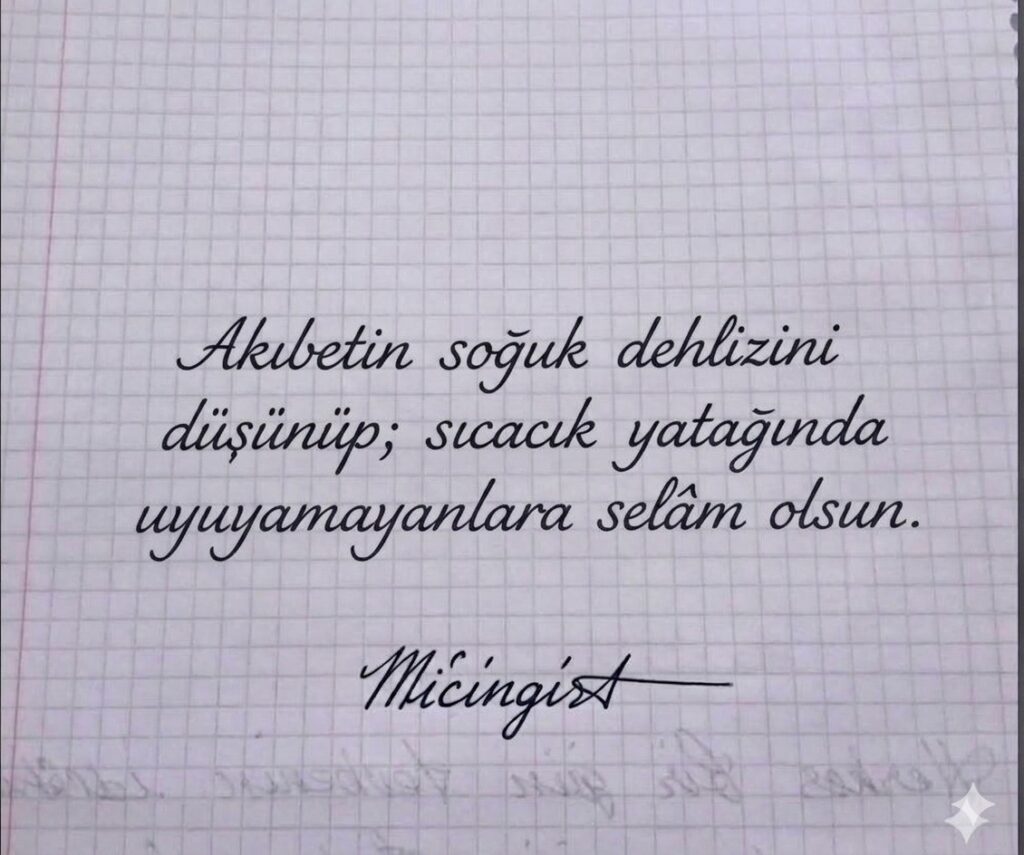 Akıbetin soğuk dehlizini
düşünüp; sıcacık yatağında
uyuyamayanlara selâm olsun.
Mićingirt